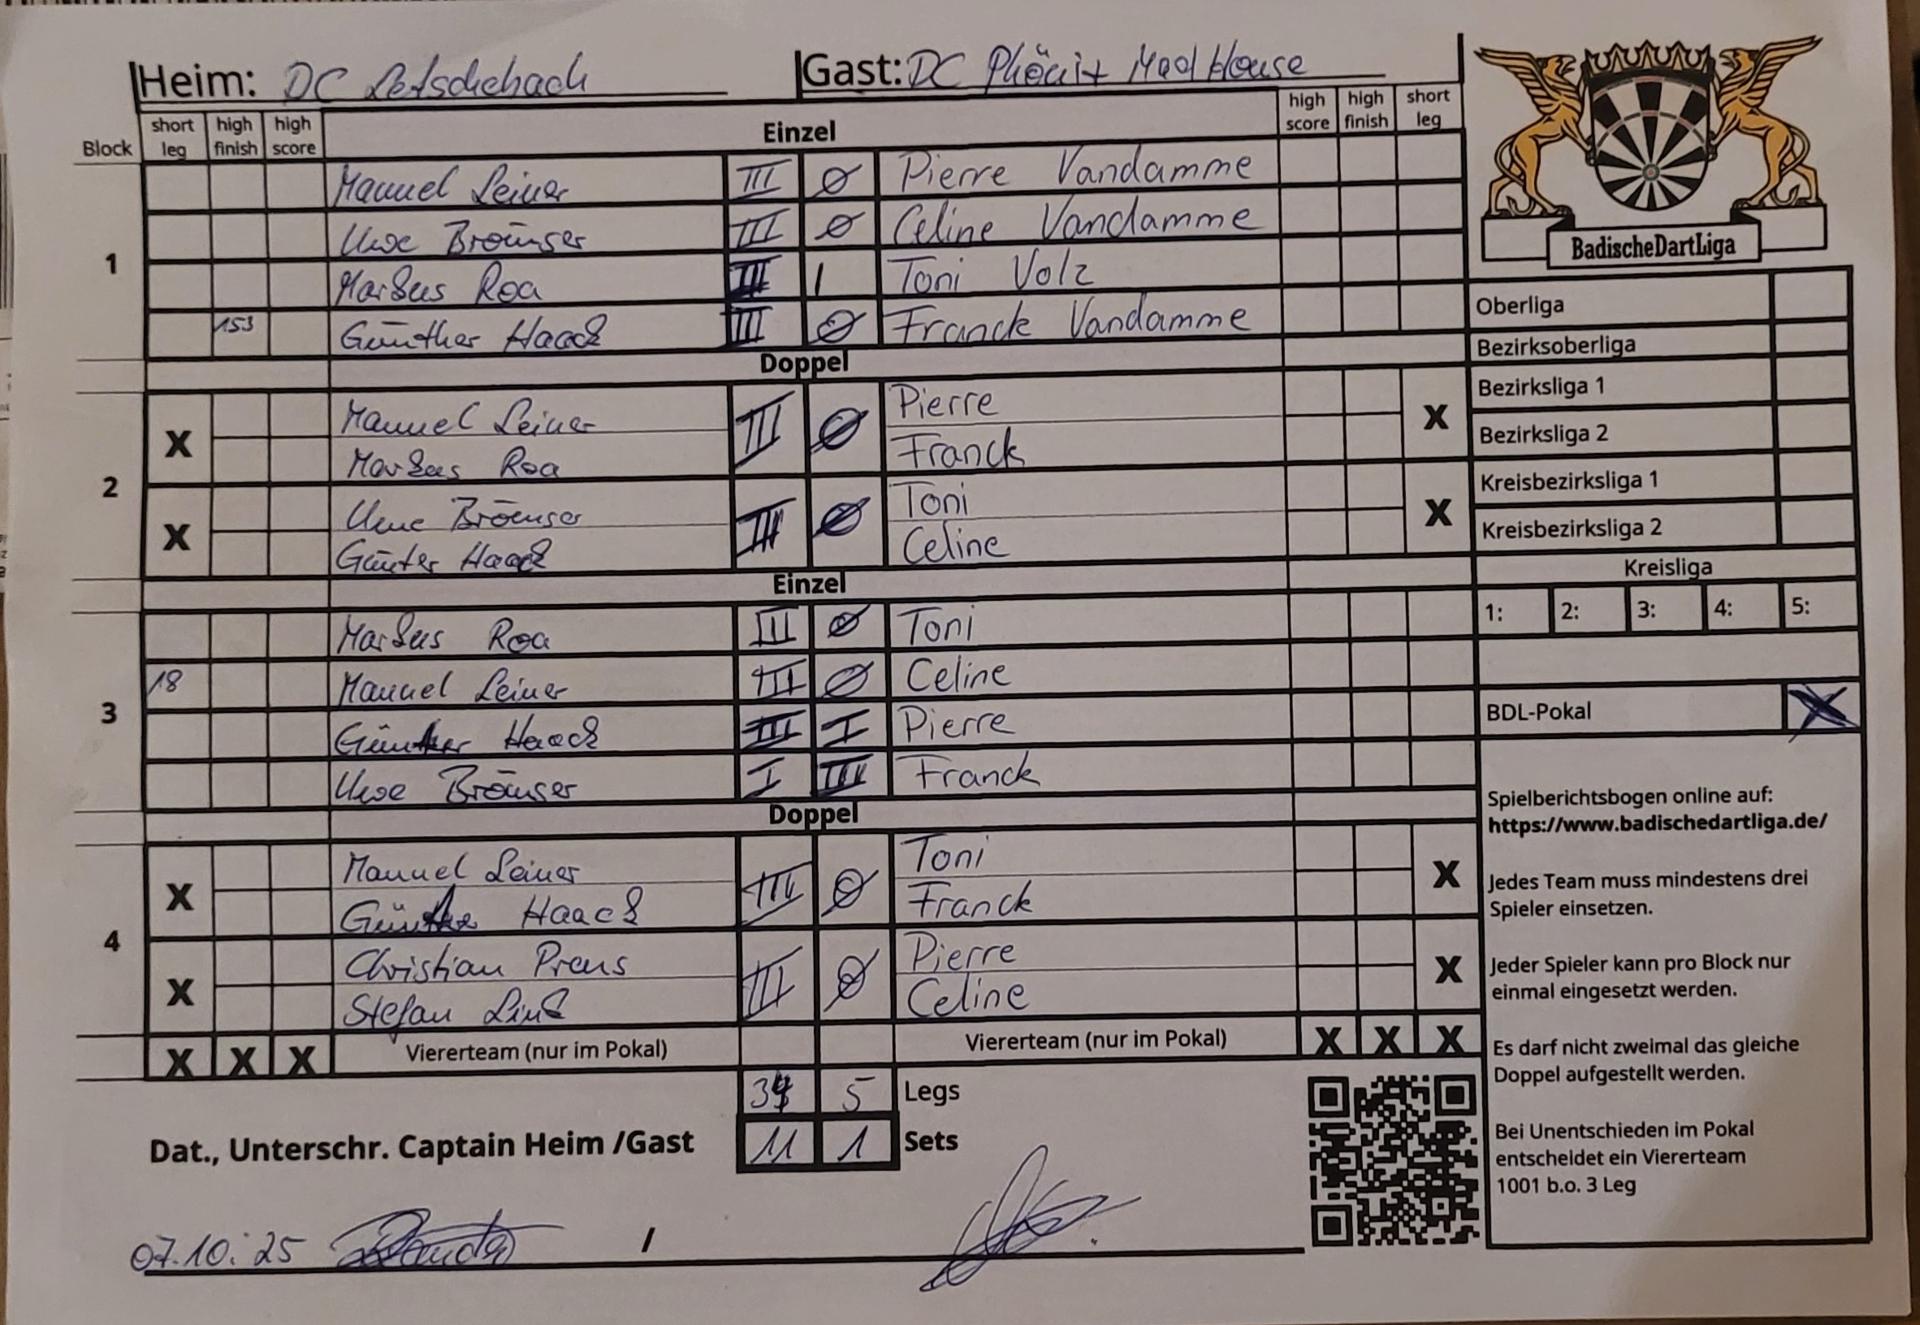 Heim: DC Letschebach Gast: DC Phönix Mad House
Block short leg high finish high score Einzel high score high finish short leg
1
Manuel Leiner III 0 Pierre Vandamme
Uwe Bräunser III 0 Celine Vandamme
Markus Roa III I Toni Volz
153 Günther Haack III 0 Franck Vandamme
Doppel
2
X Manuel Leiner III 0 Pierre X
Markus Roa Franck
X Uwe Bräunser III 0 Toni X
Günter Haack Celine
Einzel
3
Markus Roa III 0 Toni
18 Manuel Leiner III 0 Celine
Günther Haack III I Pierre
Uwe Bräunser I III Franck
Doppel
4
X Manuel Leiner III 0 Toni X
Günther Haack Franck
X Christian Preus III 0 Pierre X
Stefan Link Celine
X X X Viererteam (nur im Pokal) Viererteam (nur im Pokal) X X X
34 5 Legs
Dat., Unterschr. Captain Heim /Gast 11 1 Sets
07.10.25 /
BadischeDartLiga
Oberliga
Bezirksoberliga
Bezirksliga 1
Bezirksliga 2
Kreisbezirksliga 1
Kreisbezirksliga 2
Kreisliga
1: 2: 3: 4: 5:
BDL-Pokal X
Spielberichtsbogen online auf:
https://www.badischedartliga.de/
Jedes Team muss mindestens drei
Spieler einsetzen.
Jeder Spieler kann pro Block nur
einmal eingesetzt werden.
Es darf nicht zweimal das gleiche
Doppel aufgestellt werden.
Bei Unentschieden im Pokal
entscheidet ein Viererteam
1001 b.o. 3 Leg